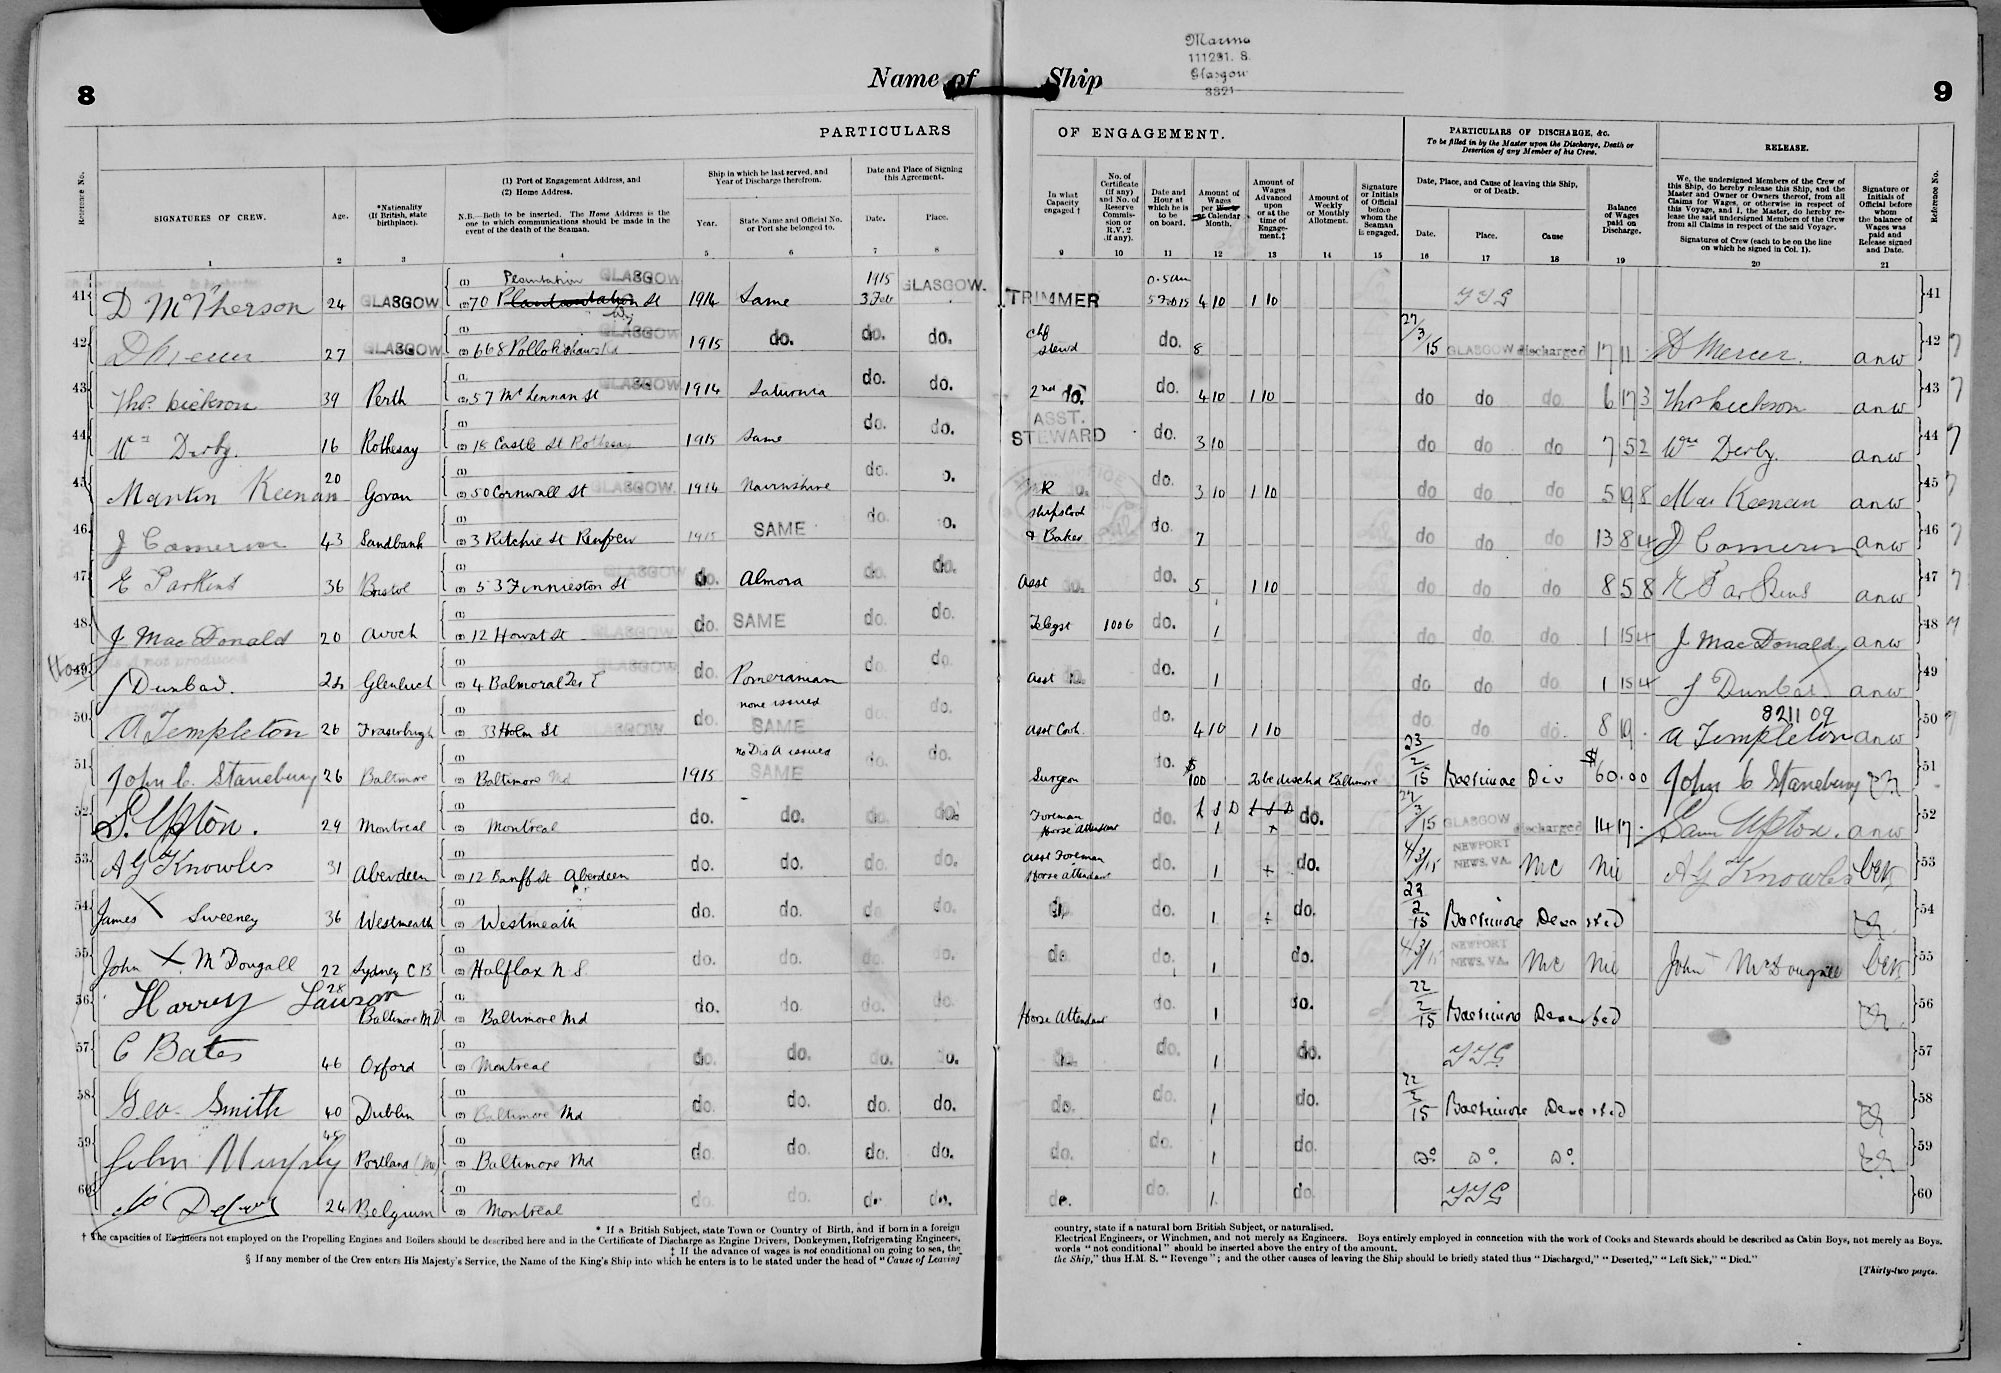 8
Name of Ship
Marina
111291. 8.
Glasgow
3821
9
PARTICULARS OF ENGAGEMENT.
PARTICULARS OF DISCHARGE, &c.
To be filled in by the Master upon the Discharge, Death or
Desertion of any Member of his Crew.
RELEASE.
Reference No.
SIGNATURES OF CREW.
Age.
*Nationality
(If British, state
birthplace).
(1) Port of Engagement Address, and
(2) Home Address.
N.B.—Both to be inserted. The Home Address is the
one to which communications should be made in the
event of the death of the Seaman.
Ship in which he last served, and
Year of Discharge therefrom.
Year.
State Name and Official No.
or Port she belonged to.
Date and Place of Signing
this Agreement.
Date.
Place.
In what
Capacity
engaged †
No. of
Certificate
(if any)
and No. of
Reserve
Commis-
sion or
R.V. 2
(if any).
Date and
Hour at
which he is
to be
on board.
Amount of
Wages
per Week
or Calendar
Month.
Amount of
Wages
Advanced
upon
or at the
time of
Engage-
ment.‡
Amount of
Weekly
or Monthly
Allotment.
Signature
or Initials
of Official
before
whom the
Seaman
is engaged.
Date, Place, and Cause of leaving this Ship,
or of Death.
Date.
Place.
Cause
Balance
of Wages
paid on
Discharge.
We, the undersigned Members of the Crew of
this Ship, do hereby release this Ship, and the
Master and Owner or Owners thereof, from all
Claims for Wages, or otherwise in respect of
this Voyage, and I, the Master, do hereby re-
lease the said undersigned Members of the Crew
from all Claims in respect of the said Voyage.
Signatures of Crew (each to be on the line
on which he signed in Col. 1).
Signature or
Initials of
Official before
whom
the balance of
Wages was
paid and
Release signed
and Date.
Reference No.
1 2 3 4 5 6 7 8 9 10 11 12 13 14 15 16 17 18 19 20 21
41 D McPherson 24 GLASGOW (1) Plantation GLASGOW (2) 70 Plantation St 1914 Same 1915 3 Feb GLASGOW. TRIMMER 5 Feb 15 4 10 1 10 41
42 27 GLASGOW (1) GLASGOW (2) 668 Pollokshaws Rd 1915 do. do. do. Chf Stewd do. 8 27/3/15 GLASGOW discharged 17 11 - D Mercer. anw 42
43 Thos. Dickson 39 Perth (1) GLASGOW (2) 57 McLennan St 1914 Saturnia do. do. 2nd do. do. 4 10 1 10 do do do 6 17 3 Thos Dickson anw 43
44 Wm Derby. 16 Rothesay (1) (2) 18 Castle St Rothesay 1915 Same do. do. ASST. STEWARD do. 3 10 do do do 7 5 2 Wm Derby. anw 44
45 Martin Keenan 20 Govan (1) (2) 50 Cornwall St GLASGOW 1914 Nairnshire do. o. do. 3 10 1 10 do do do 5 19 8 Mar Keenan anw 45
46 J Cameron 43 Sandbank (1) (2) 3 Ritchie St Renfrew 1915 SAME do. o. Ships Cook & Baker do. 7 do do do 13 8 4 J Cameron anw 46
47 E Parkins 36 Bristol (1) (2) 53 Finnieston St GLASGOW do. Almora do. do. Asst do. do. 5 1 10 do do do 8 5 8 E Parkins anw 47
48 J MacDonald 20 Avoch (1) (2) 12 Howat St GLASGOW do. SAME do. do. Telegst 1006 do. 1 do do do 1 15 4 J MacDonald anw 48
49 J Dunbar. Glenluce (1) GLASGOW (2) 4 Balmoral Ter do. Pomeranian do. do. Asst do. 1 do do do 1 15 4 J Dunbar anw 49
50 A Templeton 26 Fraserburgh (1) (2) 33 Holm St GLASGOW do. none issued SAME do. do. Asst Cook do. 4 10 1 10 do do do. 8 19 - 821109 A Templeton anw 50
51 John C. Stansbury 26 Baltimore (1) (2) Baltimore Md 1915 no Dis A issued SAME do. do. Surgeon do. $ 100 to be dischd Baltimore 23/2/15 Baltimore Dis $ 60.00 John C Stansbury 51
52 S. Upton. 29 Montreal (1) (2) Montreal do. do. do. do. Foreman Horse Attendant do. £ S D 1 £ S D do. 27/3/15 GLASGOW discharged 14 17 - Sam Upton. anw 52
53 A G Knowles 31 Aberdeen (1) (2) 12 Banff St Aberdeen do. do. do. do. Asst Foreman Horse Attendant do. 1 do. 4/3/15 NEWPORT NEWS, VA. MC Nil A G Knowles 53
54 James X Sweeney 36 Westmeath (1) (2) Westmeath do. do. do. do. do. 1 do. 23/2/15 Baltimore Deserted 54
55 John X McDougall 22 Sydney C B (1) (2) Halifax N S. do. do. do. do. do. do. 1 do. 4/3/15 NEWPORT NEWS, VA. MC Nil John McDougall 55
56 Harry Lawson 28 Baltimore Md (1) (2) Baltimore Md do. do. do. do. Horse Attendant do. 1 do. 22/2/15 Baltimore Deserted 56
57 C Bates 46 Oxford (1) (2) Montreal do. do. do. do. do. do. 1 do. 57
58 Geo. Smith 40 Dublin (1) (2) Baltimore Md do. do. do. do. do. do. 1 do. 22/2/15 Baltimore Deserted 58
59 John Murphy 45 Portland (Me) (1) (2) Baltimore Md do. do. do. do. do. do. 1 do. Do. Do. Do. 59
60 24 Belgium (1) (2) Montreal do. do. do. do. do. do. 1 do. 60
* If a British Subject, state Town or Country of Birth, and if born in a foreign country, state if a natural born British Subject, or naturalised.
† The capacities of Engineers not employed on the Propelling Engines and Boilers should be described here and in the Certificate of Discharge as Engine Drivers, Donkeymen, Refrigerating Engineers, Electrical Engineers, or Winchmen, and not merely as Engineers. Boys entirely employed in connection with the work of Cooks and Stewards should be described as Cabin Boys, not merely as Boys.
‡ If the advance of wages is not conditional on going to sea, the words "not conditional" should be inserted above the entry of the amount.
§ If any member of the Crew enters His Majesty's Service, the Name of the King's Ship into which he enters is to be stated under the head of "Cause of Leaving the Ship," thus H.M. S. "Revenge"; and the other causes of leaving the Ship should be briefly stated thus "Discharged," "Deserted," "Left Sick," "Died."
[Thirty-two pages.